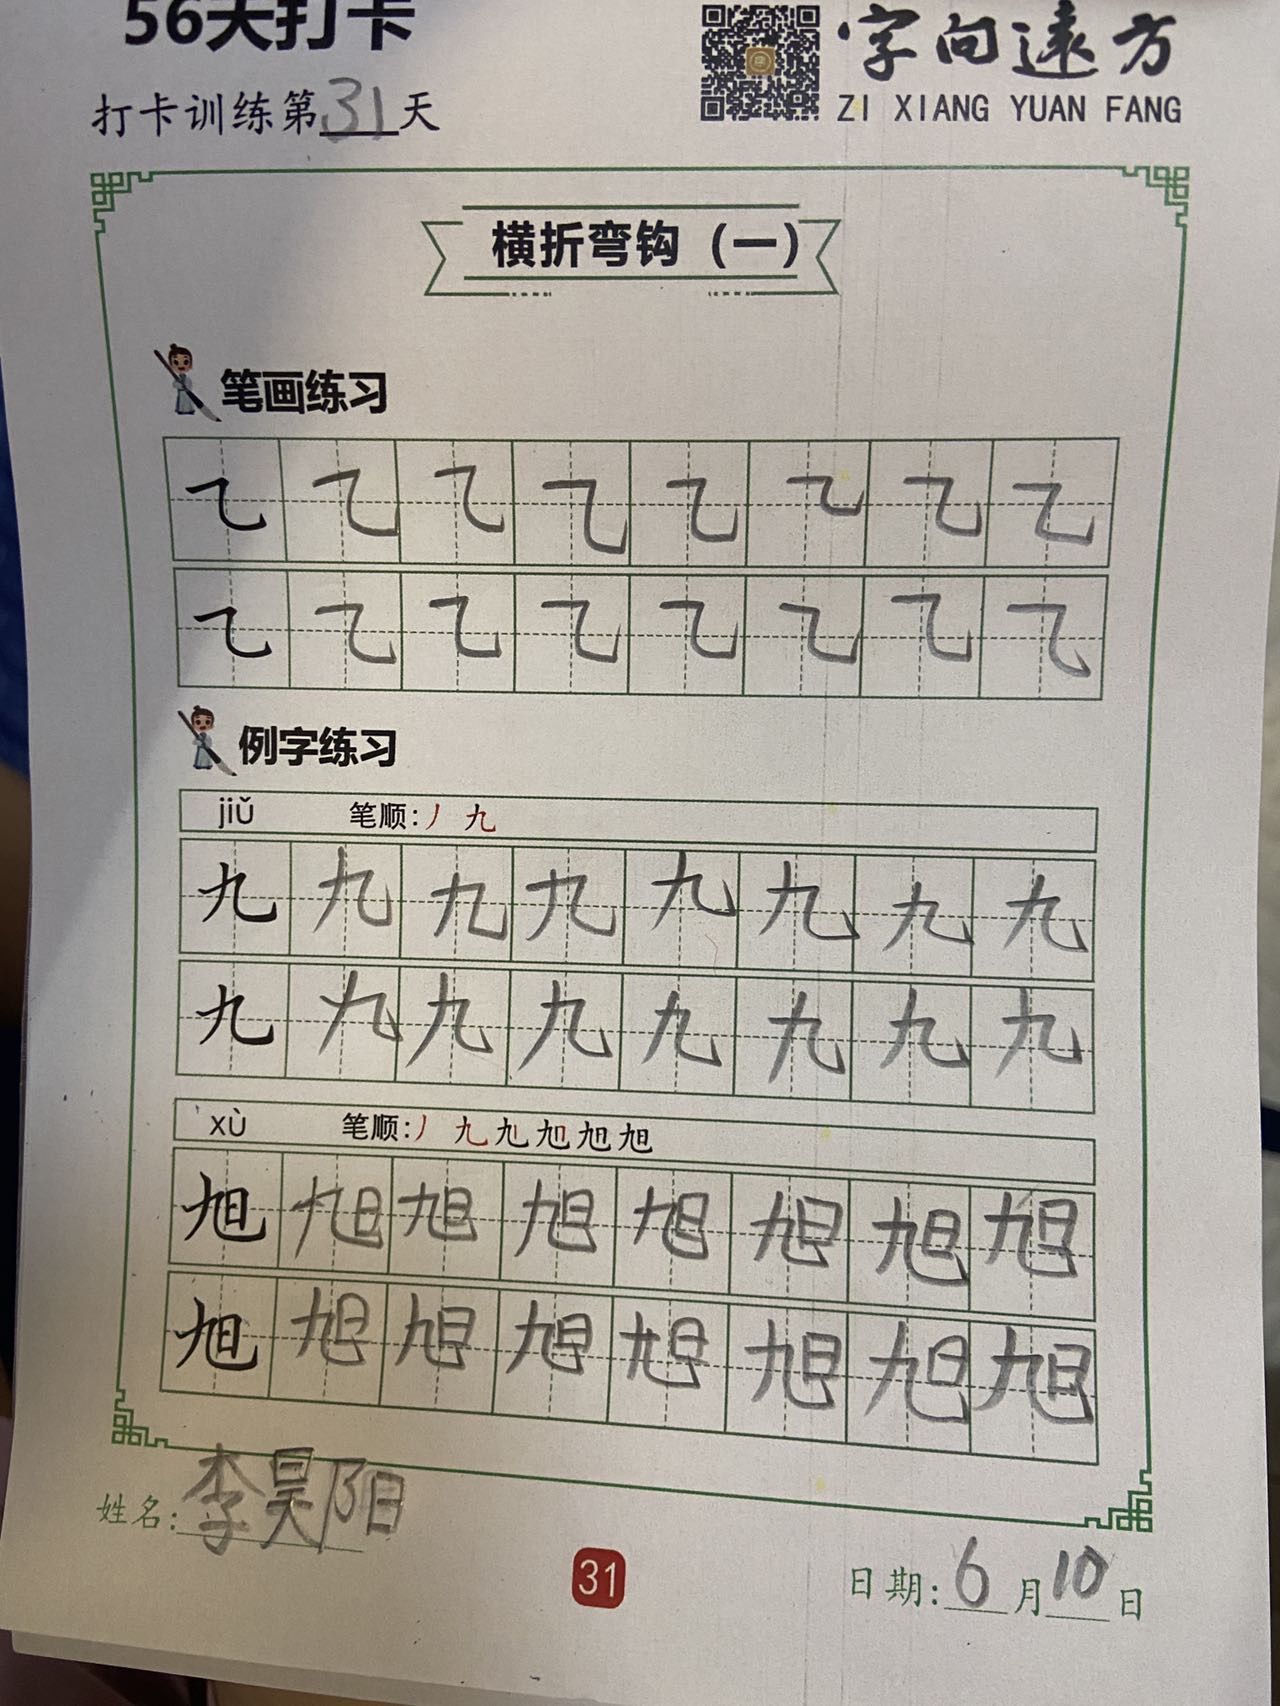 56天打卡
打卡训练第31天
字向远方
ZI XIANG YUAN FANG
横折弯钩（一）
笔画练习
㇈ ㇈ ㇈ ㇈ ㇈ ㇈ ㇈ ㇈
㇈ ㇈ ㇈ ㇈ ㇈ ㇈ ㇈ ㇈
例字练习
jiǔ 笔顺:丿 九
九 九 九 九 九 九 九 九
九 九 九 九 九 九 九 九
xù 笔顺:丿 九 旭 旭 旭 旭
旭 旭 旭 旭 旭 旭 旭 旭
旭 旭 旭 旭 旭 旭 旭 旭
姓名:李昊阳
31
日期:6月10日